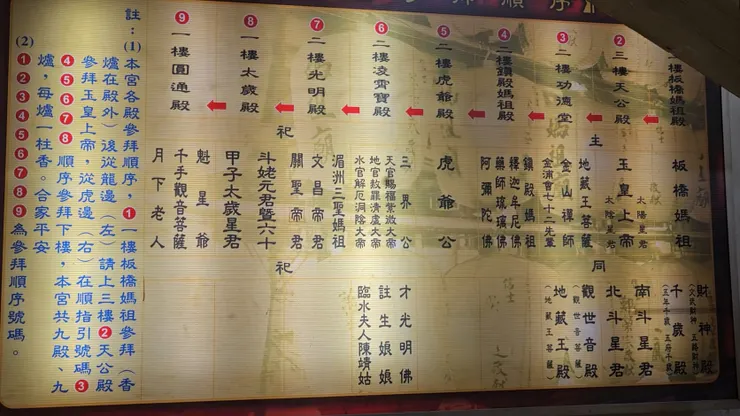 參拜順序
樓板橋媽祖殿
❷三樓天公殿
❸二樓功德堂
❹二樓鎮殿媽祖殿
❺二樓虎爺殿
❻二樓凌霄寶殿
❼二樓光明殿
❽一樓太歲殿
❾一樓圓通殿
主祀
板橋媽祖
太陽星君
玉皇上帝
太陰星君
地藏王菩薩
金山禪師
金浦會七十二先輩
鎮殿媽祖
釋迦牟尼佛
藥師琉璃佛
阿彌陀佛
虎爺公
三界公
天官賜福紫微大帝
地官赦罪清虛大帝
水官解厄洞陰大帝
湄洲三聖媽祖
文昌帝君
關聖帝君
斗姥元君暨六十
甲子太歲星君
魁星爺
千手觀音菩薩
月下老人
同祀
財神殿
(文武財神 五路財神)
千歲殿
(五年千歲 五府千歲)
南斗星君
北斗星君
觀世音殿
(觀世音菩薩)
地藏王殿
(地藏王菩薩)
才光明佛
註生娘娘
臨水夫人陳靖姑
註：(1)本宮各殿參拜順序，❶一樓板橋媽祖參拜(香
爐在殿外)後從龍邊(左)請上三樓❷天公殿
參拜玉皇上帝，從虎邊(右)在順指引號碼❸
❹❺❻❼❽順序參拜下樓，本宮共九殿、九
爐，每爐一柱香。合家平安
(2)❶❷❸❹❺❻❼❽❾為參拜順序號碼。